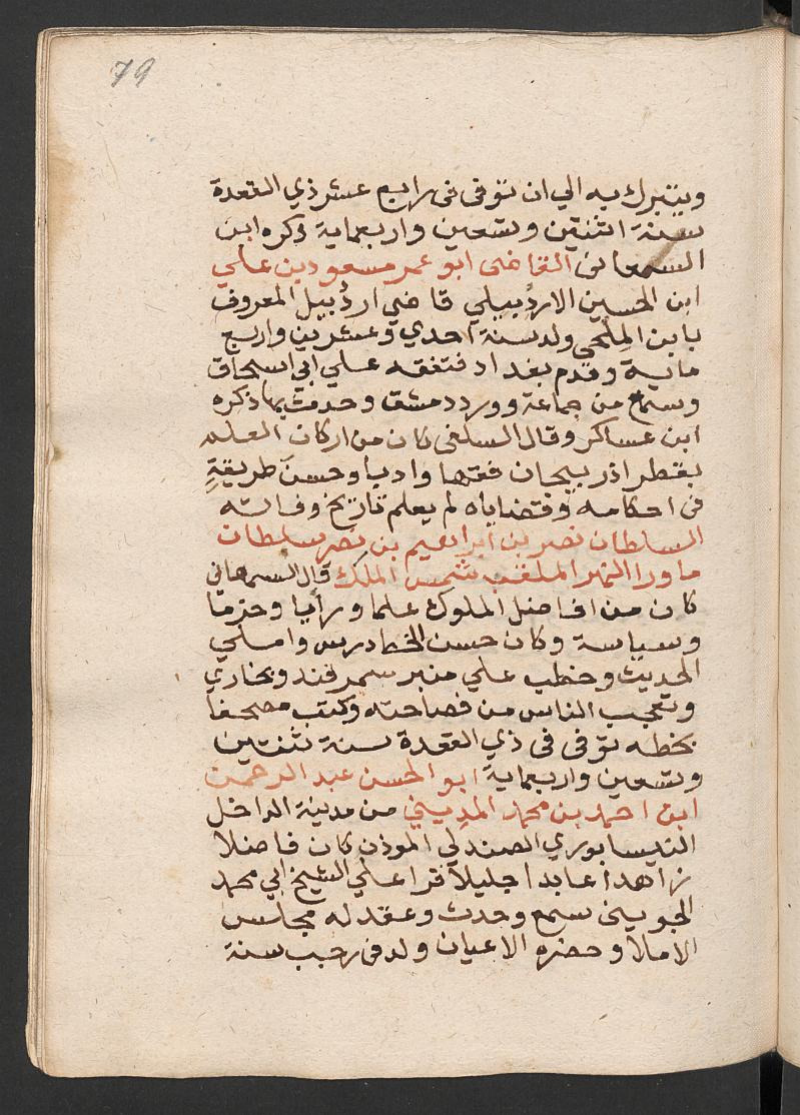 79
ويتبرك به الي ان توفى فى رابع عشر ذي القعدة
سنة اثنتين وتسعين واربعماية ذكره ابن
السمعانى القاضى ابو عمر مسعود بن علي
ابن الحسين الاردُبيلي قاضي اردُبيل المعروف
بابن المِلْحي ولد سنة احدي وعشرين واربع
ماية وقدم بغداد فتفقه علي ابي اسحاق
وسمع من جماعة وورد دمشق وحدث بها ذكره
ابن عساكر وقال السلفى كان من اركان العلم
بقطر اذربيجان فقها وادبا وحسنَ طريقةٍ
فى احكامه وقضاياه لم يعلم تاريخ وفاته
السلطان نصر بن ابراهيم بن نصر سلطان
ماورا النهر الملقب شمس الملك قال السمعاني
كان من افاضل الملوك علما ورأيا وحزما
وسياسة وكان حسن الخط درس واملي
الحديث وخطب علي منبر سمرقند وبخاري
وتعجب الناس من فصاحته وكتب مصحفا
بخطه توفى فى ذي العقدة سنة ثنتين
وتسعين واربعماية ابو الحسن عبد الرحمن
ابن احمد بن محمد المدِيني من مدينة الداخل
النيسابوري الصندلي الموذن كان فاضلا
زاهدا عابدا جليلا قرا علي الشيخ ابي محمد
الجوينى سمع وحدث وعقد له مجلس
الاملأ وحضره الاعيان ولد فى رجب سنة